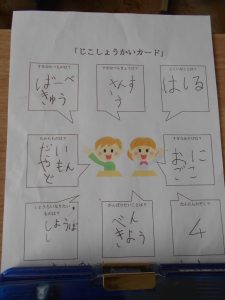 「じこしょうかいカード」
すきなたべものは?
ばーべ
きゅう
すきなべんきょうは?
さんす
う
とくいなことは?
はしる
たからものは?
だい
やもん
ど
すきなあそびは?
おに
ごこ
しょうらいなりたい
ものは?
しょうぼ
し
がんばりたいことは?
べん
きよう
たんじょうびは?
4